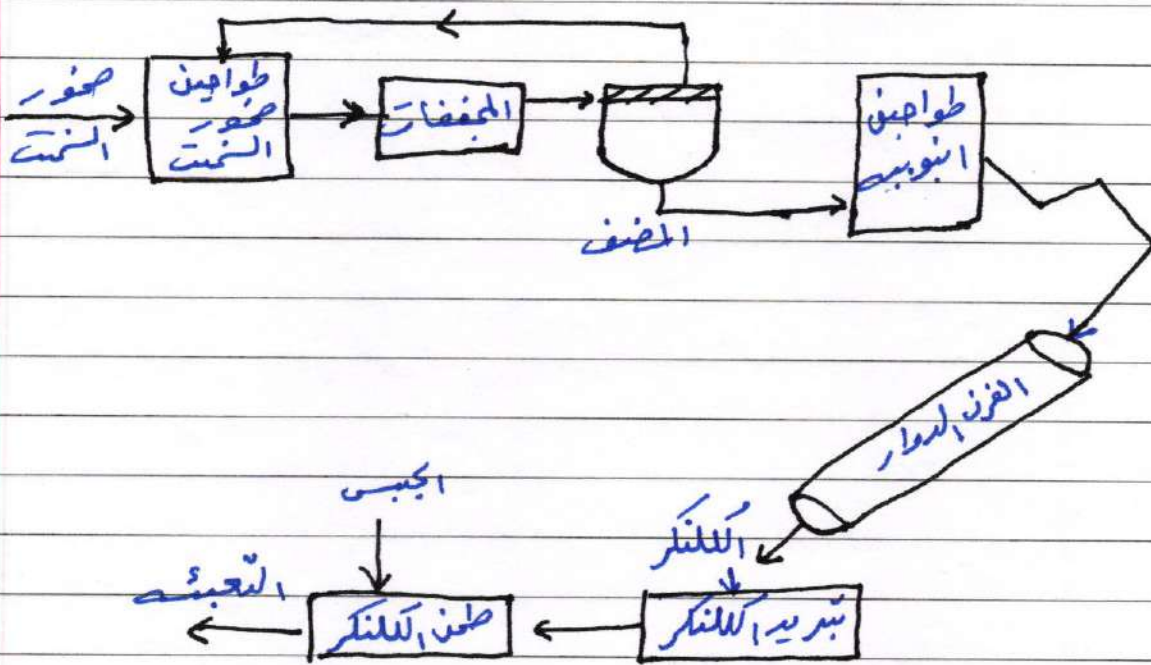 صخور
السمنت
طواحين
صخور
السمنت
المجففات
المصنف
طواحين
انبوبيه
الفرن الدوار
الكلنكر
تبريد الكلنكر
الجبس
طحن الكلنكر
التعبئه